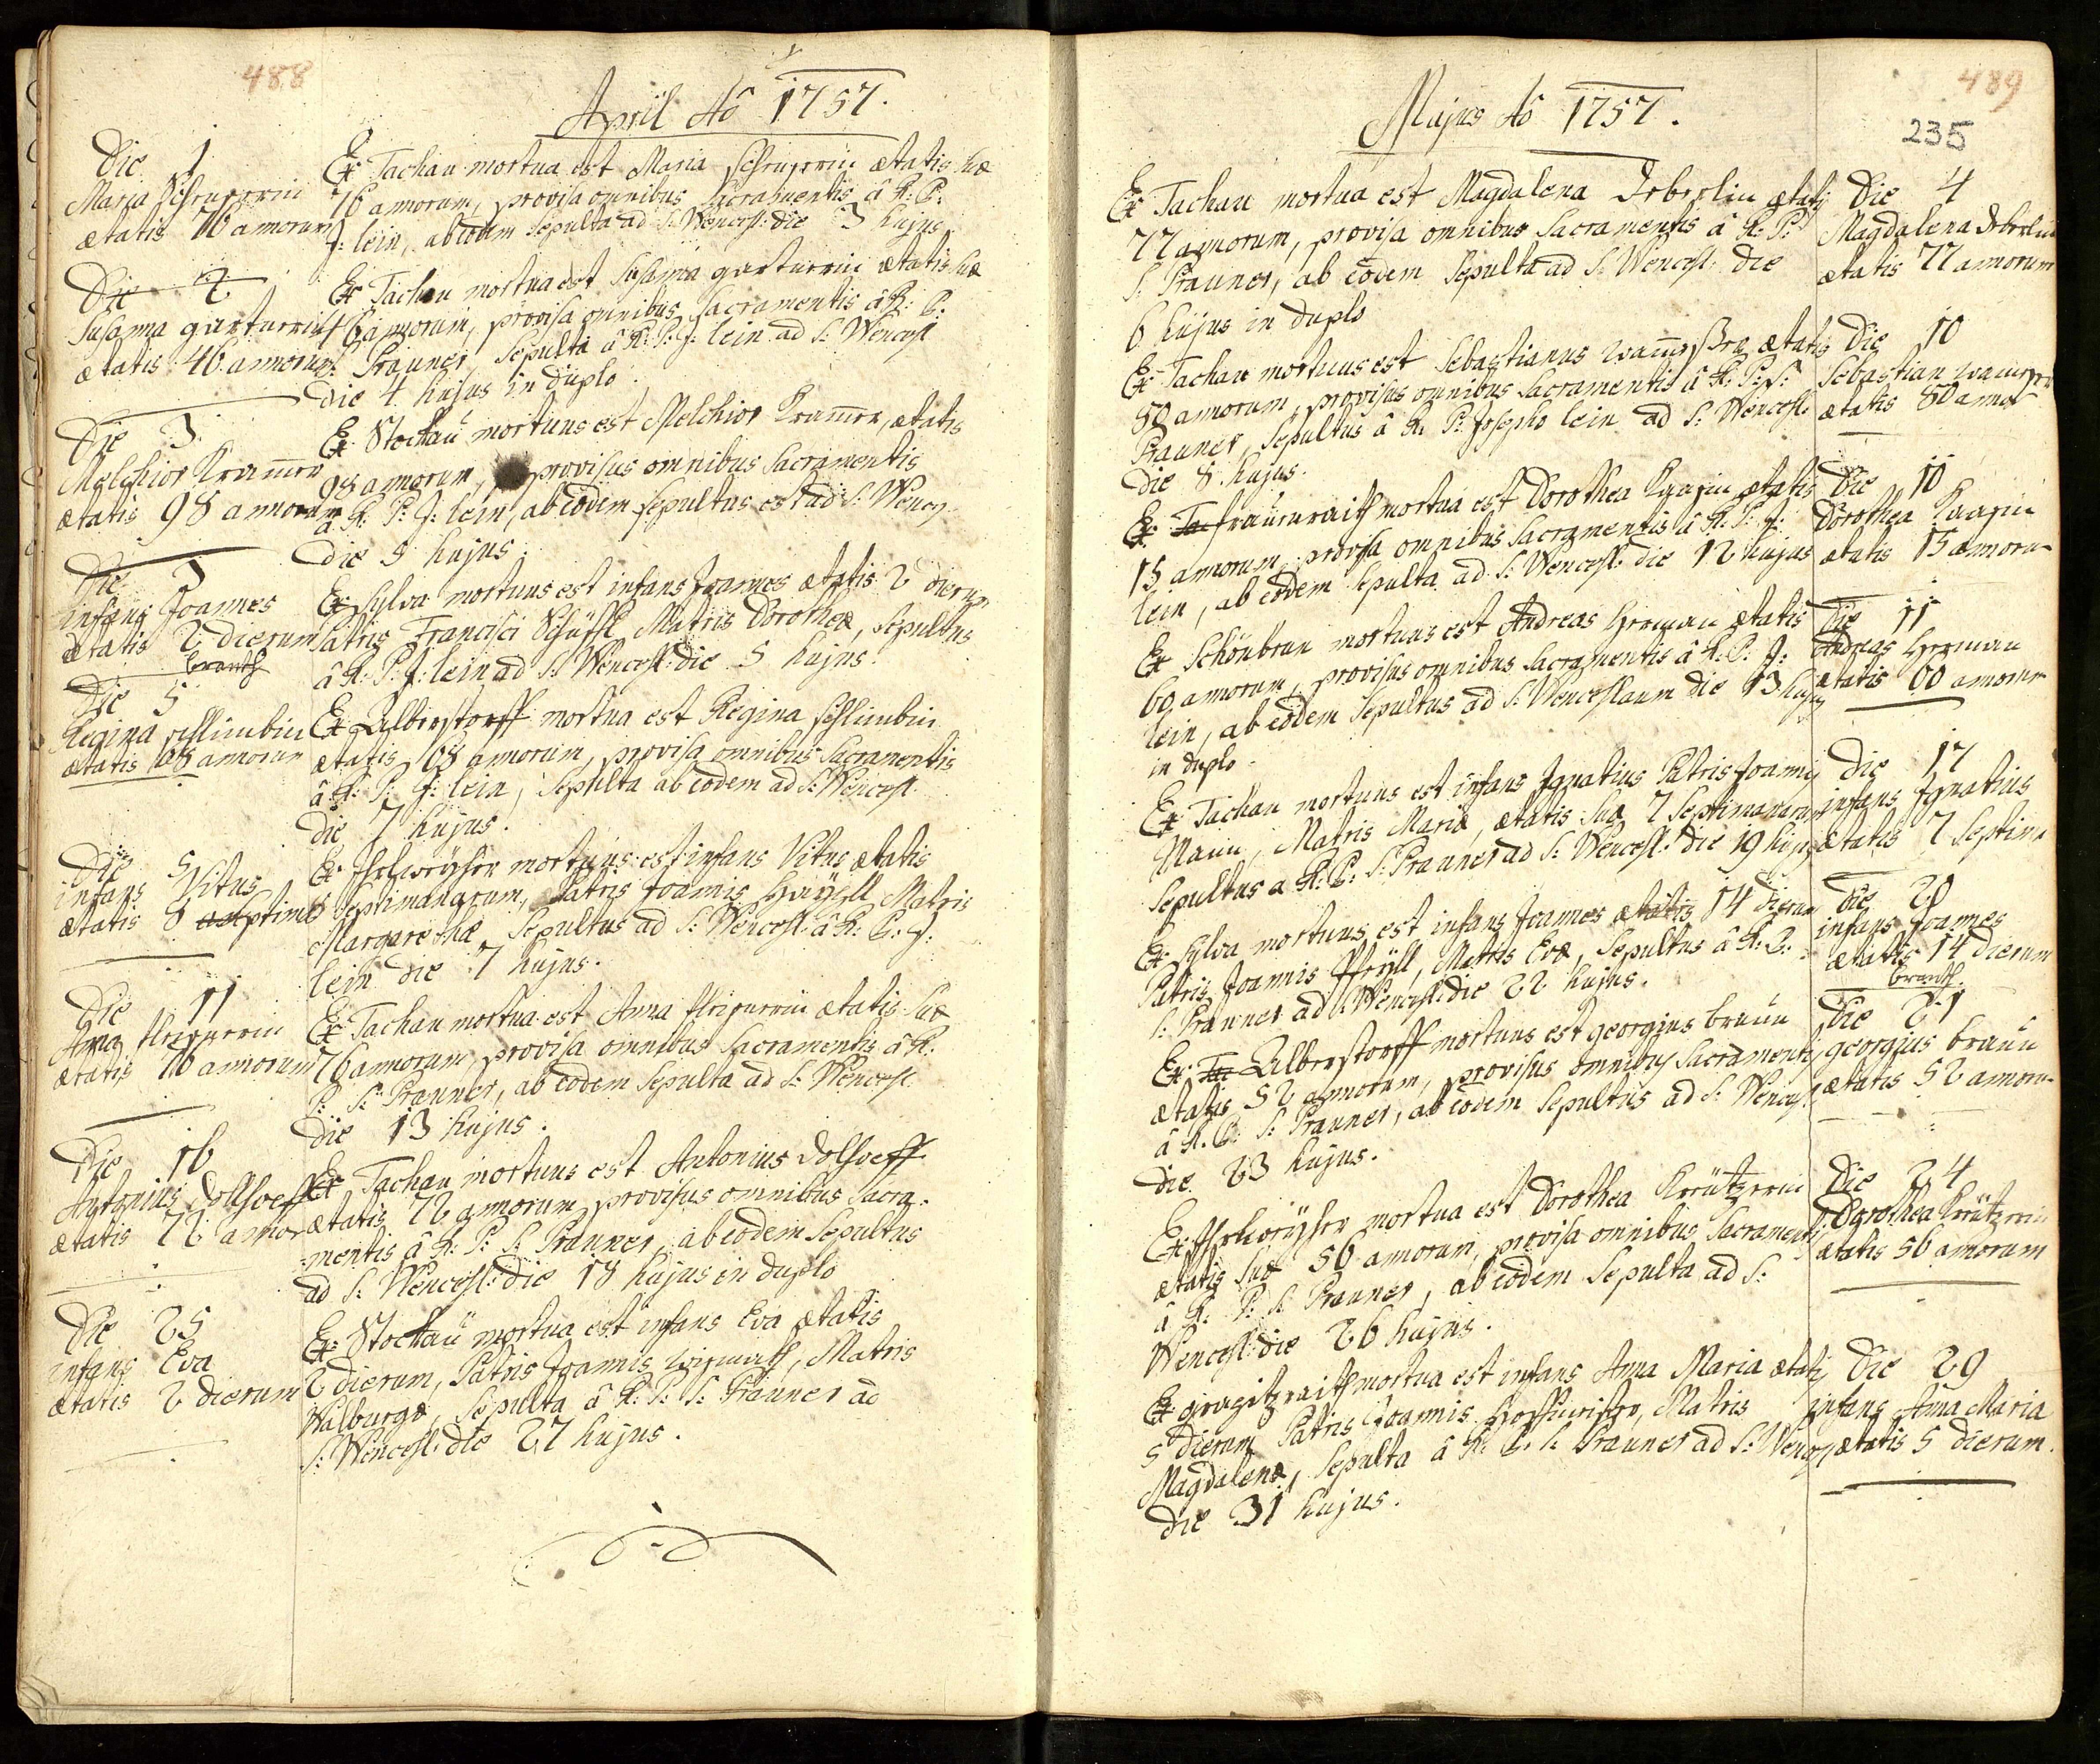 488
April Aō 1757.
Die 1
Maria
ætatis 76 annorum
Ex Tachau mortua est Maria ætatis suæ
76 annorum, provisa omnibus Sacramentis â R: P:
J: lein, ab eodem Sepulta ad S: Wencesl: die 3 hujus
Die 2
Susanna
ætatis 46 annorum
Ex Tachau mortua est Susanna ætatis suæ
46 annorum, provisa omnibus Sacramentis â R: P:
S: Prauner, Sepulta â R: P: J: lein ad S: Wencesl
die 4 hujus in duplo
Die 3
Melchior Kramer
ætatis 98 annorum
Ex Stockaü mortuus est Melchior Kramer, ætatis
98 annorum, provisus omnibus Sacramentis
â R: P: J: lein, ab eodem Sepultus est ad S: Wency
die 5 hujus.
Die 3
infans Joannes
ætatis 2 dierum
branth
Ex Sylva mortuus est infans Joannes ætatis 2 dierum
Patris Francisci Matris Dorotheæ, Sepultus
â R: P: J: lein ad S: Wencesl: die 5 hujus.
Die 5
Regina schlimbin
ætatis 68 annorum
Ex Ulberstorff mortua est Regina schlimbin
ætatis 68 annorum, provisa omnibus Sacramentis
â R: P: J: lein, Sepulta ab eodem ad S: Wencesl
die 7 hujus.
Die 5
infans Vitus
ætatis 8 Septim
Ex mortuus est infans Vitus ætatis
8 Septimanarum, Patris Joannis Matris
Margarethæ Sepultus ad S: Wencesl: â R: P: J:
lein die 7 hujus.
Die 11
Anna
ætatis 76 annorum
Ex Tachau mortua est Anna ætatis suæ
76 annorum, provisa omnibus Sacramentis â R:
P: S: Prauner, ab eodem Sepulta ad S: Wencesl
die 13 hujus.
Die 16
Antonius Dolhoeff
ætatis 72 annor
Ex Tachau mortuus est Antonius Dolhoeff
ætatis 72 annorum, provisus omnibus Sacra-
-mentis â R: P: S: Prauner, ab eodem Sepultus
ad S: Wencesl: die 18 hujus in duplo
Die 25
infans Eva
ætatis 2 dierum
Ex Stockaü mortua est infans Eva ætatis
2 dierum, Patris Joannis, Matris
Walburgæ, Sepulta â R: P: S: Prauner ad
S: Wencesl: die 27 hujus.
489
235
Majus Aō 1757.
Ex Tachau mortua est Magdalena ætatis
77 annorum, provisa omnibus Sacramentis â R: P:
S: Prauner, ab eodem Sepulta ad S: Wencesl: die
6 hujus in duplo
Die 4
Magdalena
ætatis 77 annorum
Ex Tachau mortuus est Sebastianus ætatis
80 annorum, provisus omnibus Sacramentis â R: P: S:
Prauner, Sepultus â R: P: Josepho lein ad S: Wencesl:
die 8 hujus.
Die 10
Sebastian
ætatis 80 anno
Ex mortua est Dorothea ætatis
15 annorum, provisa omnibus Sacramentis â R: P: J:
lein, ab eodem Sepulta ad S: Wencesl: die 12 hujus
Die 10
Dorothea
ætatis 15 annoru-
Ex Schönbrun mortuus est Andreas Herman ætatis
60 annorum, provisus omnibus Sacramentis â R: P: J:
lein, ab eodem Sepultus ad S: Wenceslaum die 13 hujus
in duplo
Die 11
Andreas Herman
ætatis 60 annoru
Ex Tachau mortuus est infans Ignatius Patris Joannis
Maün, Matris Mariæ, ætatis suæ 7 Septimanarum
Sepultus a R: P: S: Prauner ad S: Wencesl: die 19 hujus
Die 17
infans Ignatius
ætatis 7 Septima
Ex Sylva mortuus est infans Joannes ætatis 14 dierum
Patris Joannis, Matris Evæ, Sepultus â R: P:
S: Prauner ad S: Wencesl: die 22 hujus.
Die 20
infans Joannes
ætatis 14 dierum
branth.
Ex Ulberstorff mortuus est georgius braün
ætatis 52 annorum, provisus omnibus Sacramentis
â R: P: S: Prauner, ab eodem Sepultus ad S: Wencesl:
die 23 hujus.
Die 21
georgius braün
ætatis 52 annoru-
Ex mortua est Dorothea Kreützerin
ætatis suæ 56 annorum, provisa omnibus Sacramentis
â R: P: S: Prauner, ab eodem Sepulta ad S:
Wencesl: die 26 hujus.
Die 24
Dorothea Kreützerin
ætatis 56 annorum
Ex mortua est infans Anna Maria ætatis
5 dierum Patris Joannis, Matris
Magdalenæ, Sepulta â R: P: S: Prauner ad S: Wency
die 31 hujus.
Die 29
infans Anna Maria
ætatis 5 dierum.